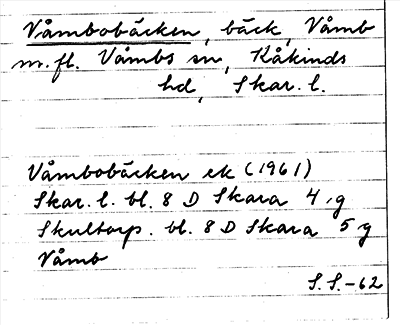 Våmbobäcken, bäck, Våmb
m.fl. Våmbs sn, Kåkinds
hd, Skar. l.
Våmbobäcken ek (1961)
Skar. l. bl. 8 D Skara 4, g
Skultorp. bl. 8 D Skara 5 g
Våmb
S. S. -62